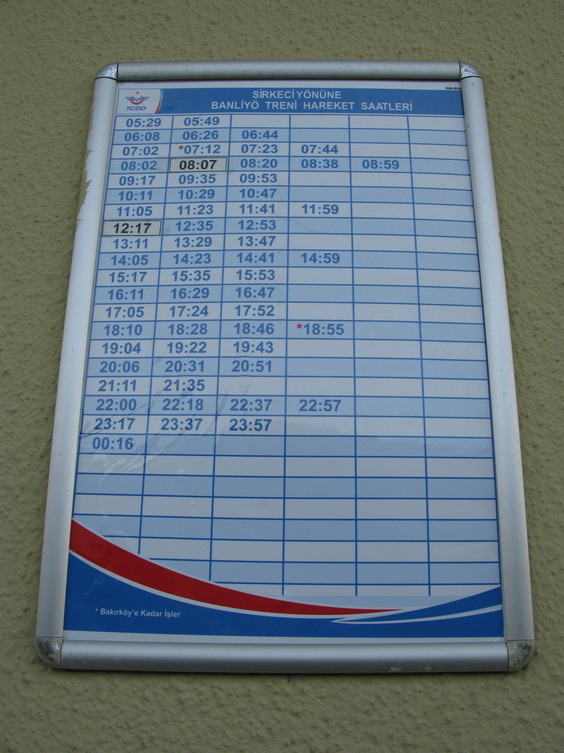 TCDD
SİRKECİ YÖNÜNE
BANLİYÖ TRENİ HAREKET SAATLERİ
05:29 05:49
06:08 06:26 06:44
07:02 *07:12 07:23 07:44
08:02 08:07 08:20 08:38 08:59
09:17 09:35 09:53
10:11 10:29 10:47
11:05 11:23 11:41 11:59
12:17 12:35 12:53
13:11 13:29 13:47
14:05 14:23 14:41 14:59
15:17 15:35 15:53
16:11 16:29 16:47
17:05 17:24 17:52
18:10 18:28 18:46 *18:55
19:04 19:22 19:43
20:06 20:31 20:51
21:11 21:35
22:00 22:18 22:37 22:57
23:17 23:37 23:57
00:16
* Bakırköy'e Kadar İşler